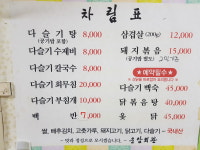 차림표
다슬기탕 8,000
(공기밥 포함)
다슬기수제비 8,000
다슬기칼국수 8,000
다슬기회무침 20,000
다슬기부침개 10,000
백반 7,000
삼겹살 (200g) 12,000
돼지볶음 15,000
(공기밥 별도)
★예약필수★
다슬기백숙 45,000
닭볶음탕 40,000
옻닭 45,000
쌀, 배추김치, 고춧가루, 돼지고기, 닭고기, 다슬기 - 국내산